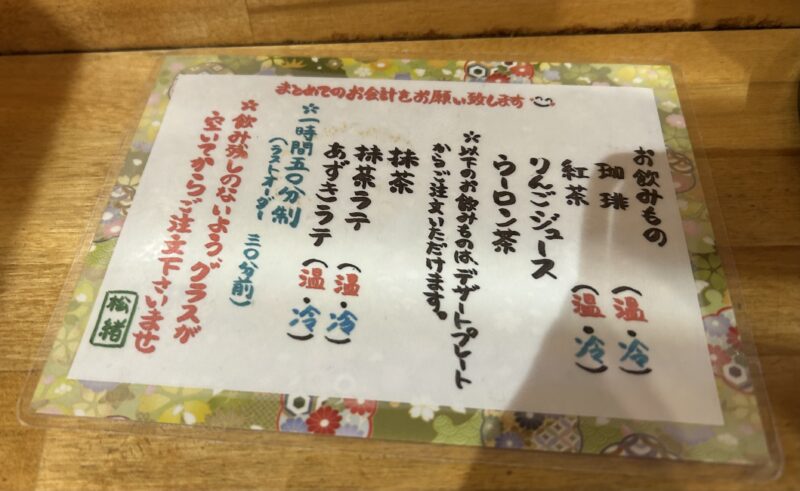 まとめてのお会計をお願い致します
お飲みもの
珈琲 (温・冷)
紅茶 (温・冷)
りんごジュース
ウーロン茶
※以下のお飲みものは、デザートプレート
からご注文いただけます。
抹茶
抹茶ラテ (温・冷)
あずきラテ (温・冷)
☆一時間五〇分制
(ラストオーダー 三〇分前)
☆飲み残しのないよう、グラスが
空いてからご注文下さいませ
松緒